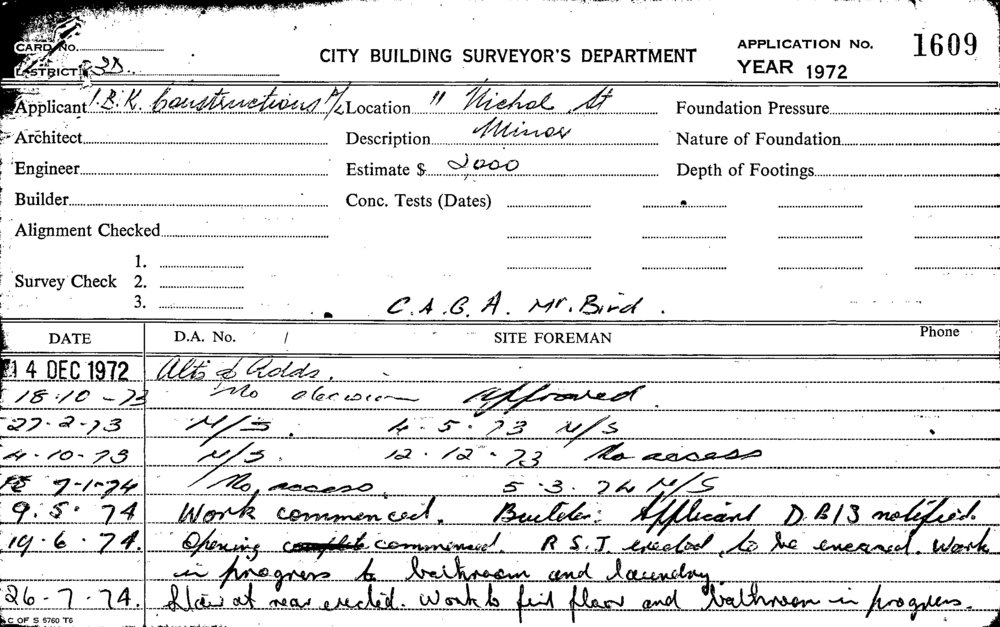 CARD No.
CITY BUILDING SURVEYOR'S DEPARTMENT
APPLICATION No. 1609
DISTRICT 3D
YEAR 1972
Applicant I.B.K. Constructions P/L Location 11 Nichol St Foundation Pressure
Architect Description Minor Nature of Foundation
Engineer Estimate $ 2000 Depth of Footings
Builder Conc. Tests (Dates)
Alignment Checked
1.
Survey Check 2.
3.
C.A.G.A. Mr. Bird.
DATE D.A. No. / SITE FOREMAN Phone
14 DEC 1972 Alts & Adds.
18.10-73 No decision approved.
27-2-73 N/S. 4-5-73 N/S
4-10-73 N/S. 12-12-73 No access
7-1-74 No access. 5-3-74 N/S
9.5.74 Work commenced. Builder: Applicant D.B13 notified.
19.6.74. Opening complete commenced. R.S.J. erected, to be encased. Work
in progress to bathroom and laundry.
26-7-74. at rear erected. Work to first floor and bathroom in progress.
C OF S 5760 T6